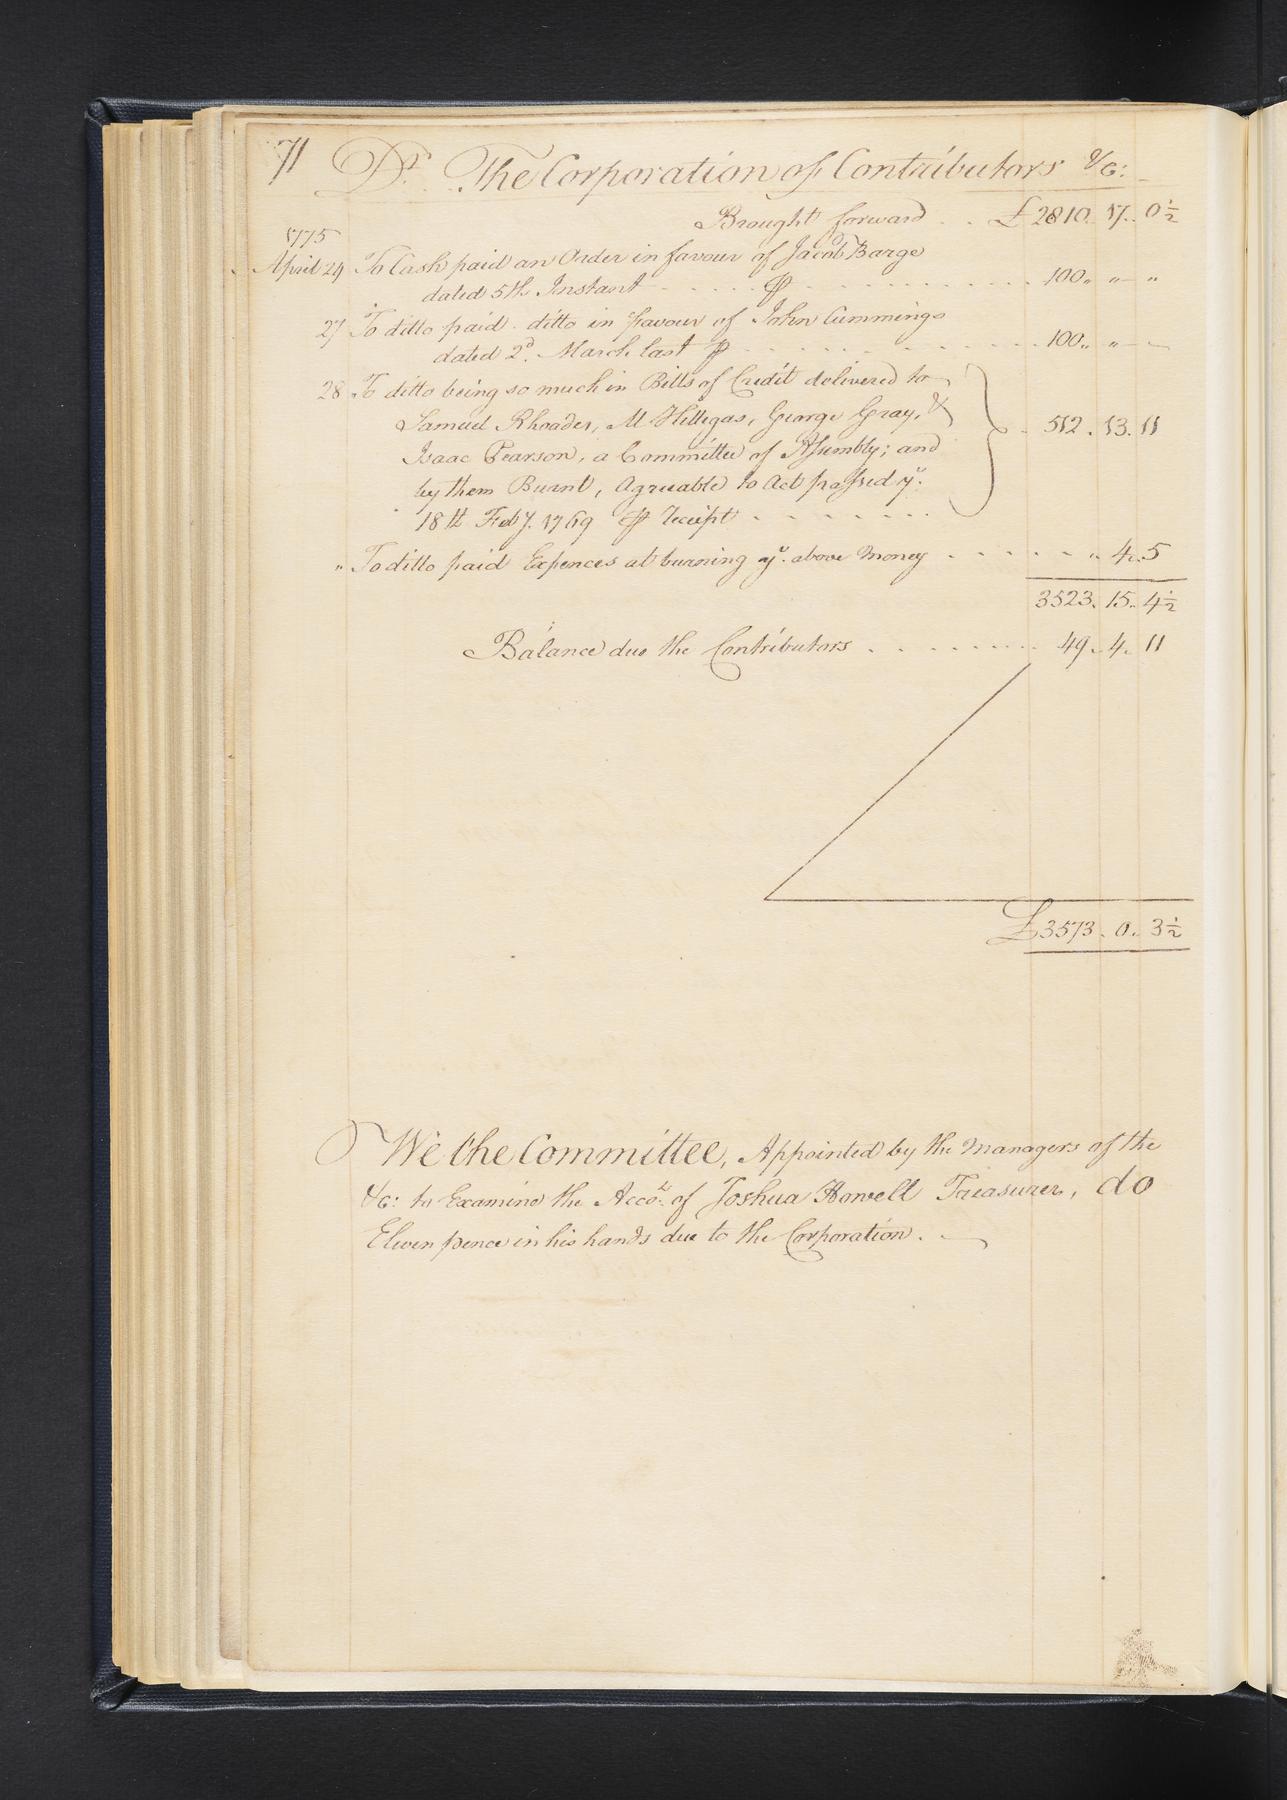 71 Dr. The Corporation of Contributors &c:
Brought forward . . £2810. 17. 0½
1775
April 24 To Cash paid an Order in favour of Jacob Barge
dated 5th Instant . . . . . ⅌ . . . . . . . . . . . 100 „ „ — „
27 To ditto paid ditto in favour of John Cummings
dated 2d. March last ⅌ . . . . . . . . . . . 100 „ „ —
28 To ditto being so much in Bills of Credit delivered to
Samuel Rhoades, M Hillegas, George Gray, &
Isaac Pearson, a Committee of Assembly; and
by them Burnt, Agreeable to Act passed ye.
18th Feby. 1769 ⅌ Receipt . . . . . . . 512. 13. 11
„ To ditto paid Expences at burning ye. above Money . . . . . . „ 4. 5
3523. 15. 4½
Balance due the Contributors . . . . . . . . . 49. 4. 11
£3573. 0. 3½
We the Committee, Appointed by the Managers of the
&c: to Examine the Accots. of Joshua Howell Treasurer, do
Eleven pence in his hands due to the Corporation.